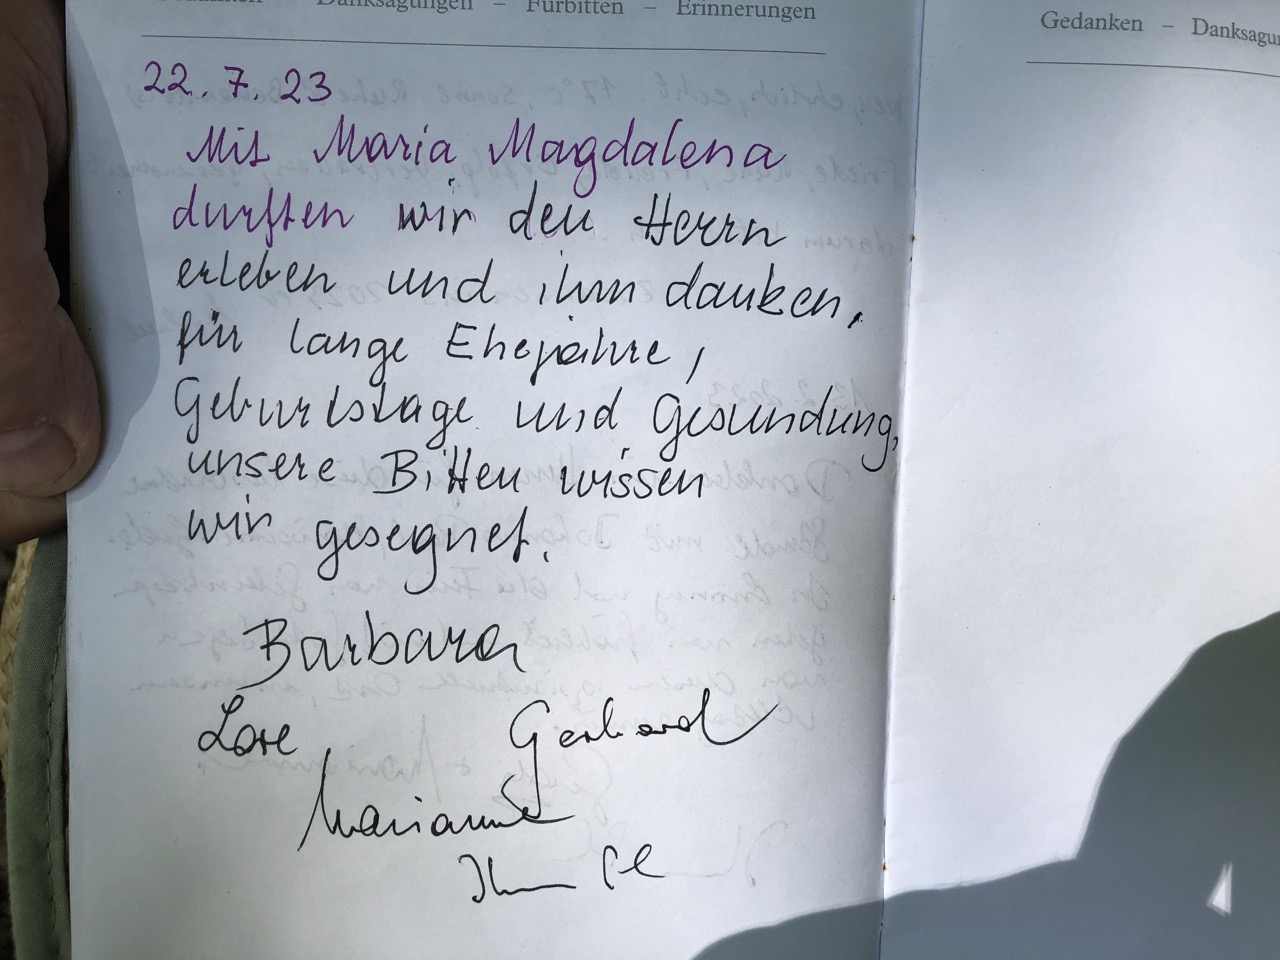 Gedanken – Danksagungen – Fürbitten – Erinnerungen
22.7.23
Mit Maria Magdalena
durften wir den Herrn
erleben und ihm danken,
für lange Ehejahre,
Geburtstage und Gesundung,
unsere Bitten wissen
wir gesegnet.
Barbara
Lore, Gerhard
Marianne
Gedanken – Danksagu